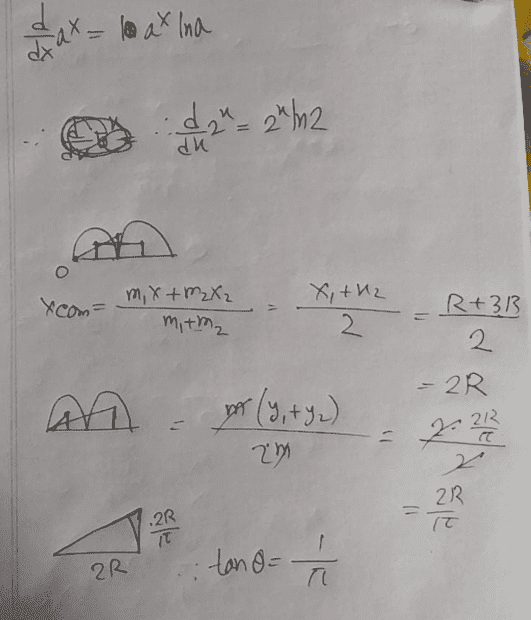 d/dx a^x = a^x ln a
∴ ∴ d/dx 2^x = 2^x ln 2
O
Xcom = (m₁x + m₂x₂)/(m₁ + m₂) = (x₁ + x₂)/2 = (R + 3R)/2
= 2R
= m(y₁ + y₂)/2m = (2 · 2R/π)/2
= 2R/π
2R/π
2R ∴ tan θ = 1/π